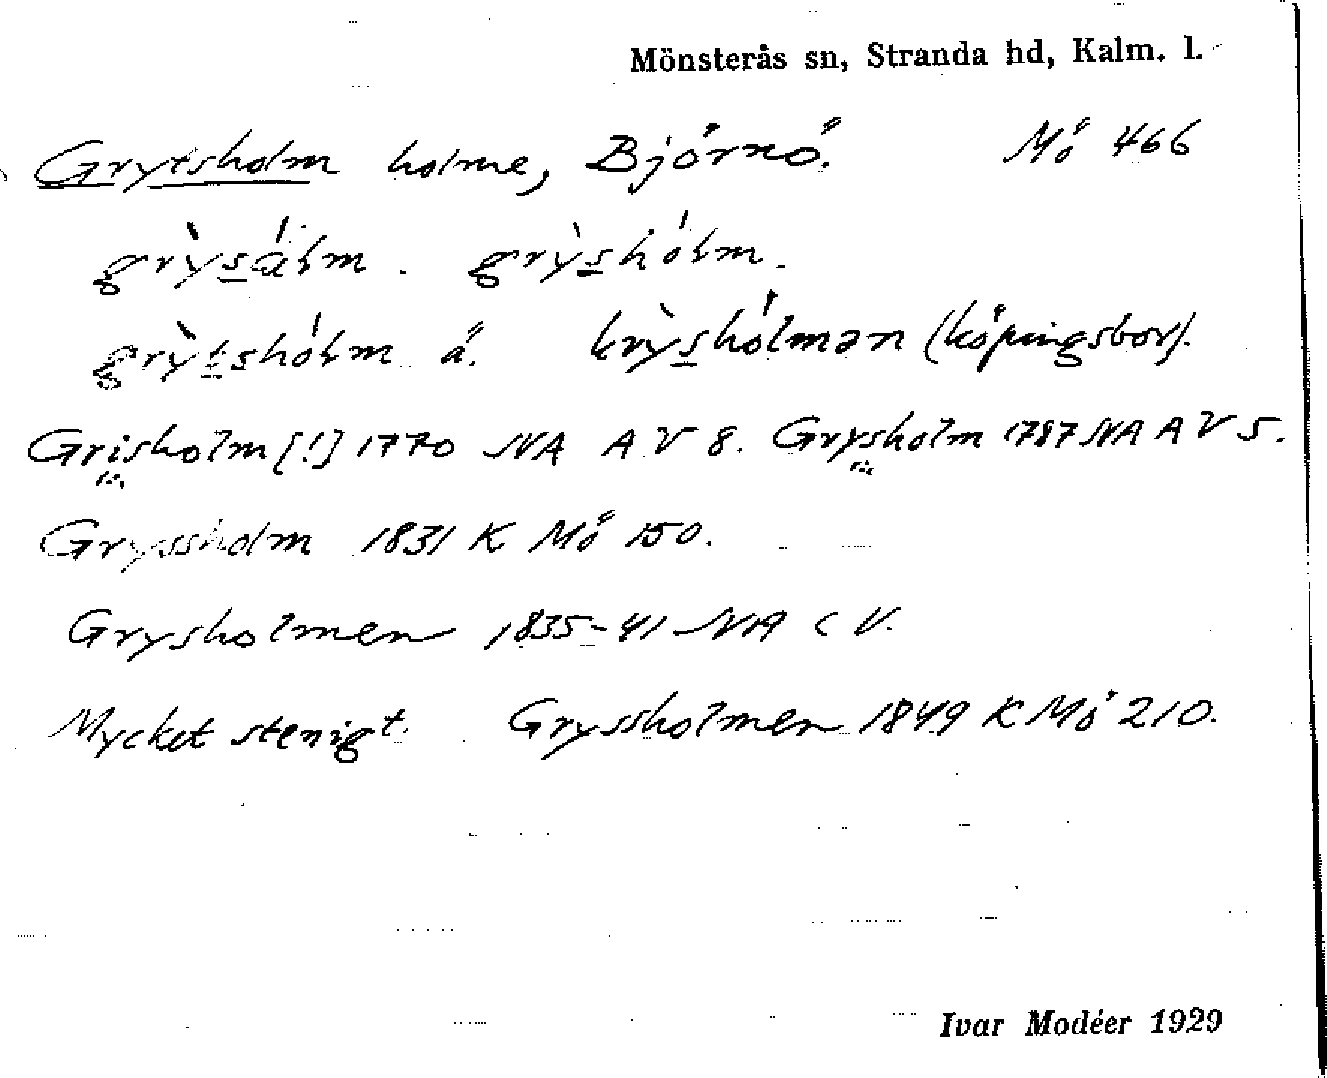 Mönsterås sn, Stranda hd, Kalm. l.
Grytsholm holme, Björnö. Mö 466
grỳsálm. grỳshólm.
grỳtshólm ä. krỳshólmən (köpingsbor).
Grisholm [!] 1770 NA A V 8. Grysholm 1787 NA A V 5.
Gryssholm 1831 K Mö 150.
Grysholmen 1835-41 NA C V.
Mycket stenigt. Gryssholmen 1849 K Mö 210.
Ivar Modéer 1929